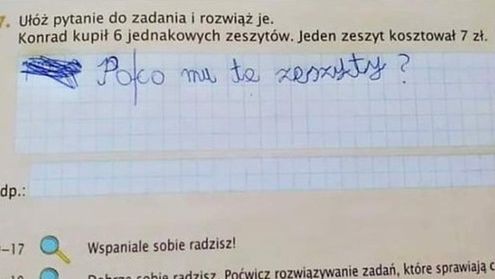 7. Ułóż pytanie do zadania i rozwiąż je.
Konrad kupił 6 jednakowych zeszytów. Jeden zeszyt kosztował 7 zł.
Po co mu te zeszyty?
dp.:
–17 Wspaniale sobie radzisz!
Dobrze sobie radzisz. Poćwicz rozwiązywanie zadań, które sprawiają